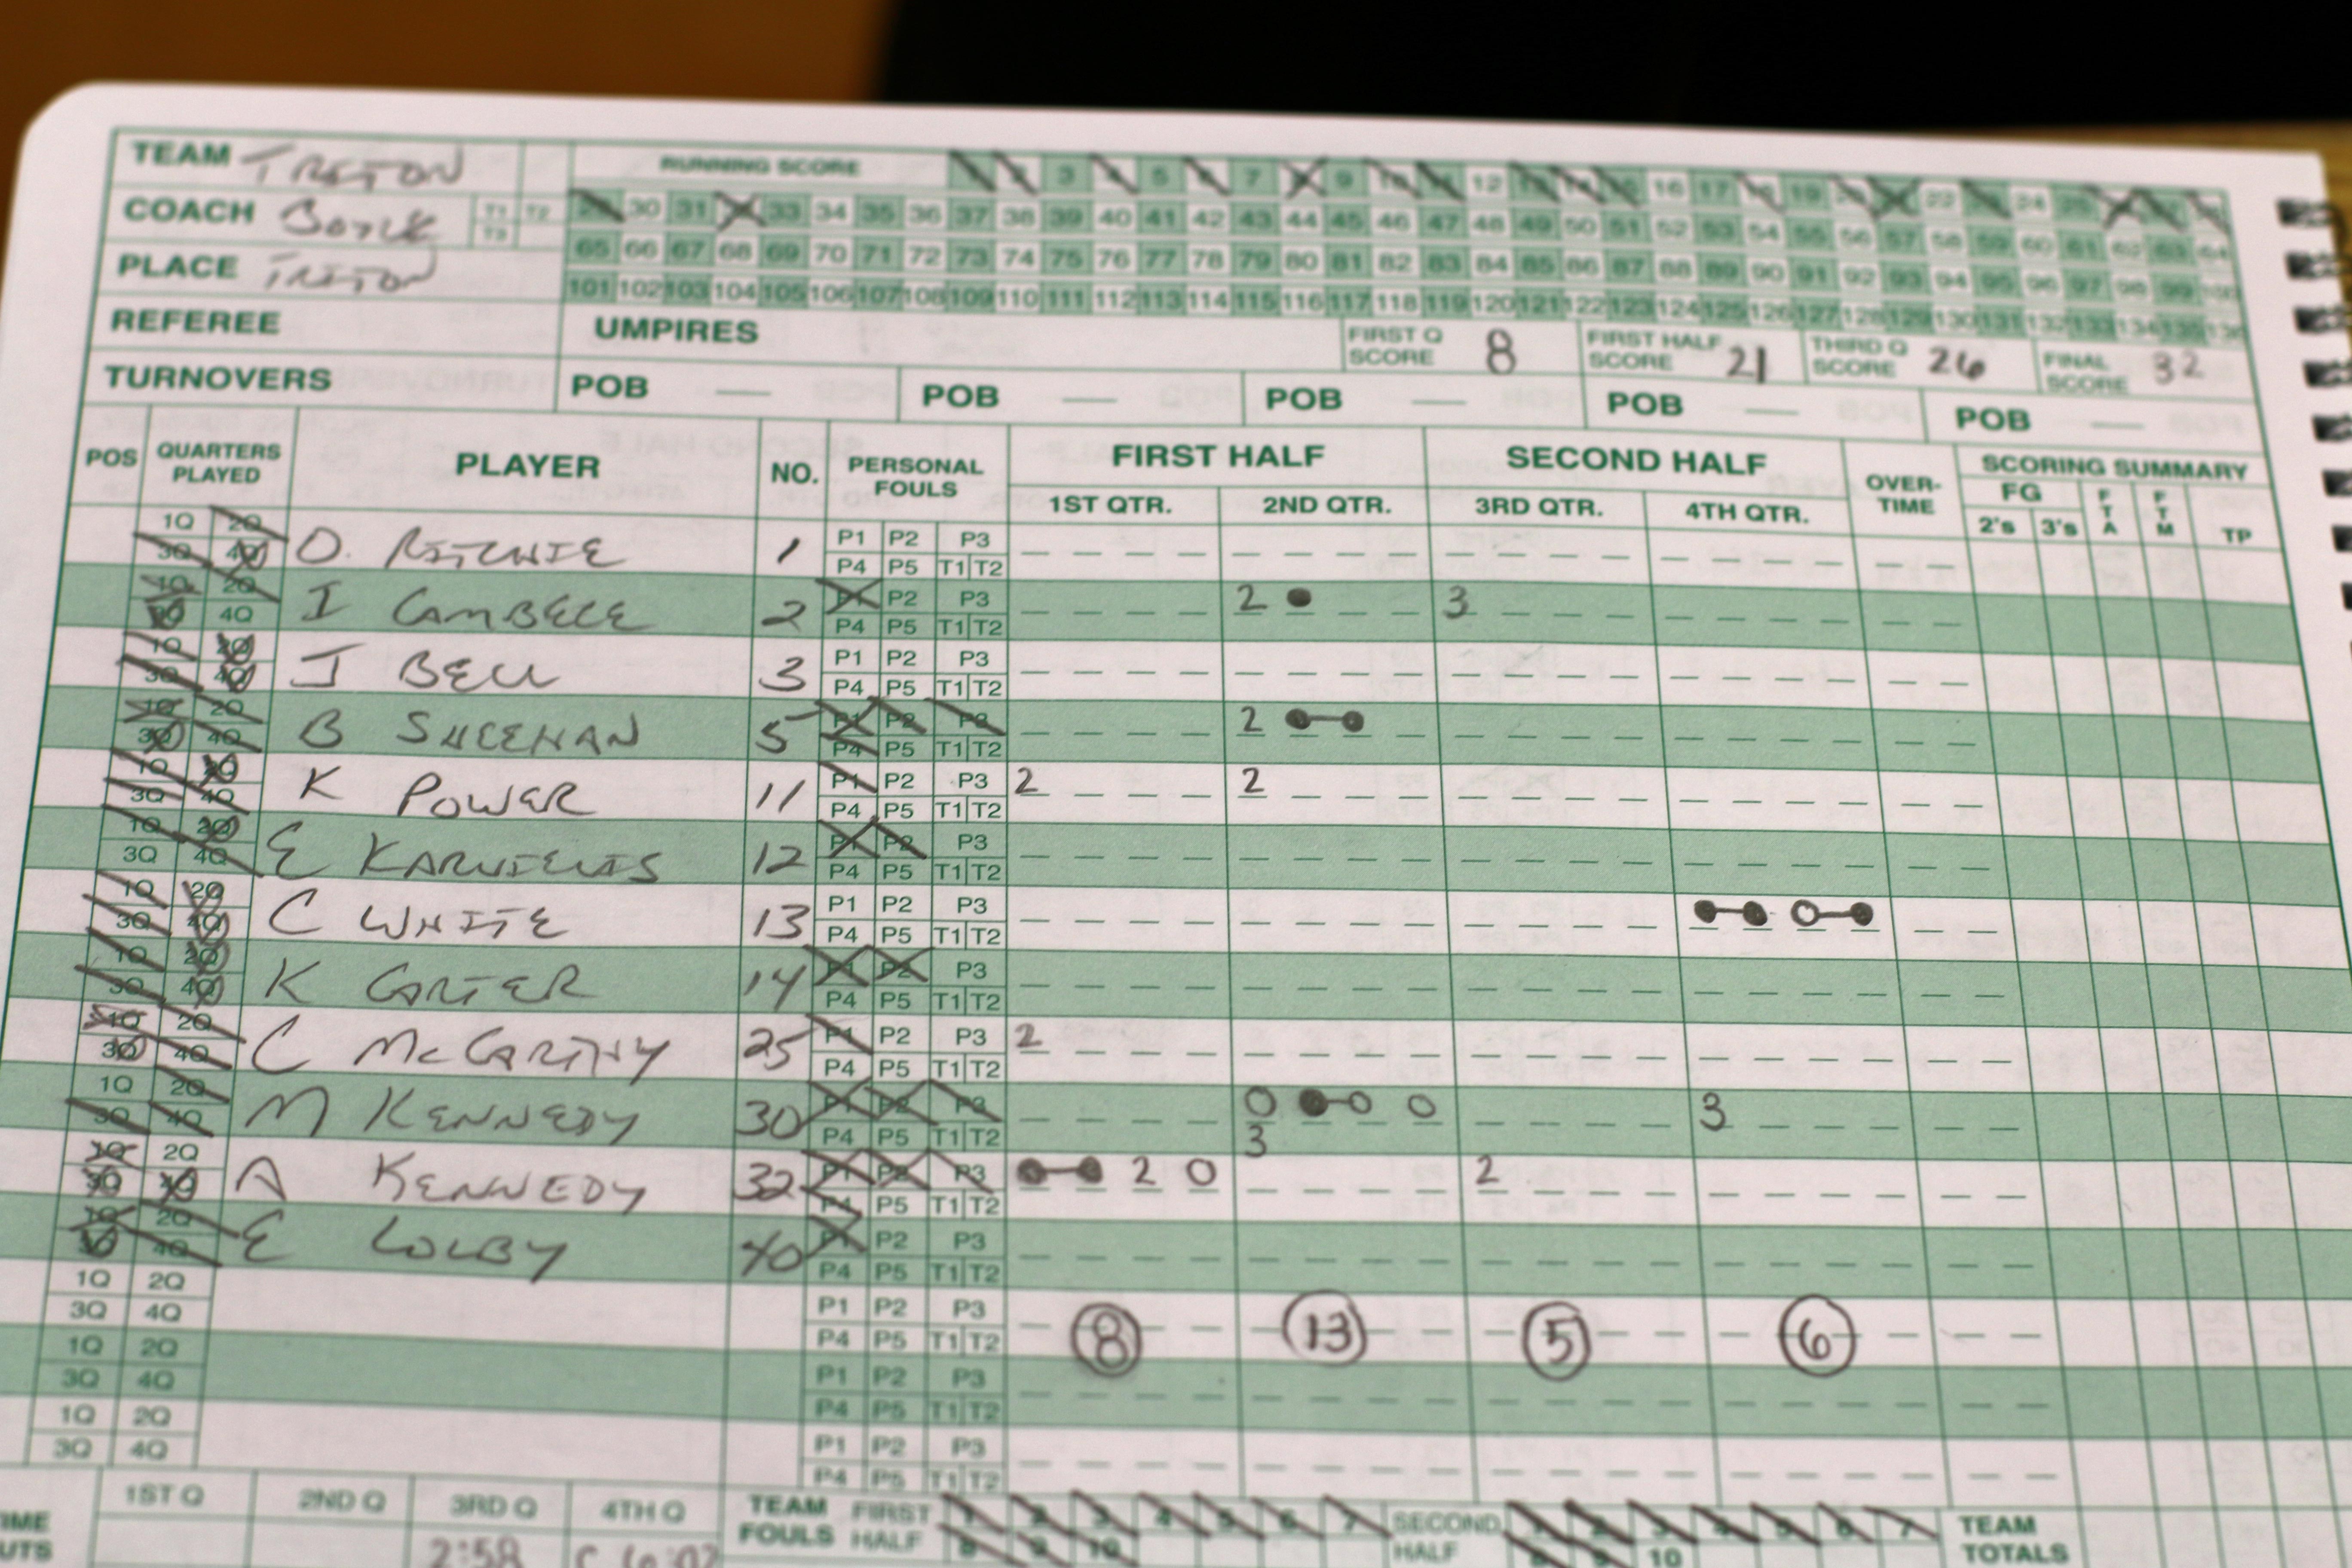 TEAM TRITON RUNNING SCORE 1 2 3 4 5 6 7 8 9 10 11 12 13 14 15 16 17 18 19 20 21 22 23 24 25 26 27 28
COACH T1 T2 29 30 31 32 33 34 35 36 37 38 39 40 41 42 43 44 45 46 47 48 49 50 51 52 53 54 55 56 57 58 59 60 61 62 63 64
T3
PLACE TRITON 65 66 67 68 69 70 71 72 73 74 75 76 77 78 79 80 81 82 83 84 85 86 87 88 89 90 91 92 93 94 95 96 97 98 99 100
101 102 103 104 105 106 107 108 109 110 111 112 113 114 115 116 117 118 119 120 121 122 123 124 125 126 127 128 129 130 131 132 133 134 135 136
REFEREE UMPIRES FIRST Q SCORE 8 FIRST HALF SCORE 21 THIRD Q SCORE 26 FINAL SCORE 32
TURNOVERS POB — POB — POB — POB — POB —
POS QUARTERS PLAYED PLAYER NO. PERSONAL FOULS FIRST HALF SECOND HALF OVER-TIME SCORING SUMMARY
1ST QTR. 2ND QTR. 3RD QTR. 4TH QTR. FG 2's 3's FTA FTM TP
1Q 2Q O. RITCHIE 1 P1 P2 P3
3Q 4Q P4 P5 T1 T2
1Q 2Q I CAMBELL 2 P1 P2 P3 2 ● 3
3Q 4Q P4 P5 T1 T2
1Q 2Q J BELL 3 P1 P2 P3
3Q 4Q P4 P5 T1 T2
1Q 2Q B SHEEHAN 5 P1 P2 P3 2 ●-●
3Q 4Q P4 P5 T1 T2
1Q 2Q K POWER 11 P1 P2 P3 2 2
3Q 4Q P4 P5 T1 T2
1Q 2Q E 12 P1 P2 P3
3Q 4Q P4 P5 T1 T2
1Q 2Q C WHITE 13 P1 P2 P3 ●-● O-●
3Q 4Q P4 P5 T1 T2
1Q 2Q K 14 P1 P2 P3
3Q 4Q P4 P5 T1 T2
1Q 2Q C McCARTHY 25 P1 P2 P3 2
3Q 4Q P4 P5 T1 T2
1Q 2Q M KENNEDY 30 P1 P2 P3 O ●-O O 3
3Q 4Q P4 P5 T1 T2 3
1Q 2Q A KENNEDY 32 P1 P2 P3 ●-● 2 O 2
3Q 4Q P4 P5 T1 T2
1Q 2Q E COLBY 40 P1 P2 P3
3Q 4Q P4 P5 T1 T2
1Q 2Q P1 P2 P3 8 13 5 6
3Q 4Q P4 P5 T1 T2
1Q 2Q P1 P2 P3
3Q 4Q P4 P5 T1 T2
1Q 2Q P1 P2 P3
3Q 4Q P4 P5 T1 T2
1ST Q 2ND Q 3RD Q 4TH Q TEAM FOULS FIRST HALF 1 2 3 4 5 6 7 SECOND HALF 1 2 3 4 5 6 7 TEAM TOTALS
2:58 C 6:02 8 9 10 8 9 10